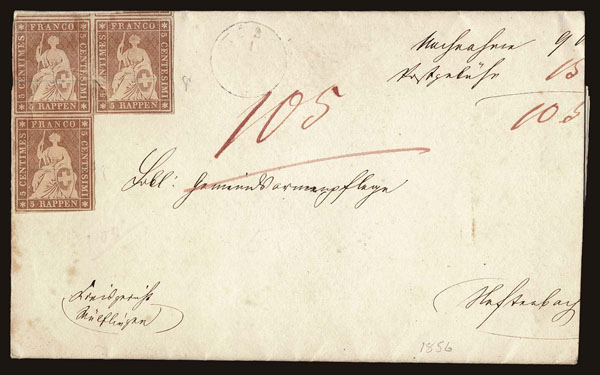 FRANCO
5 CENTIMES
5 CENTESIMI
5 RAPPEN
FRANCO
5 CENTIMES
5 CENTESIMI
5 RAPPEN
FRANCO
5 CENTIMES
5 CENTESIMI
5 RAPPEN
Nachnahme 90
Postgebühr 15
105
105
Löbl: Gemeindsarmenpflege
Kreisgericht
Wülflingen
Neftenbach
1856